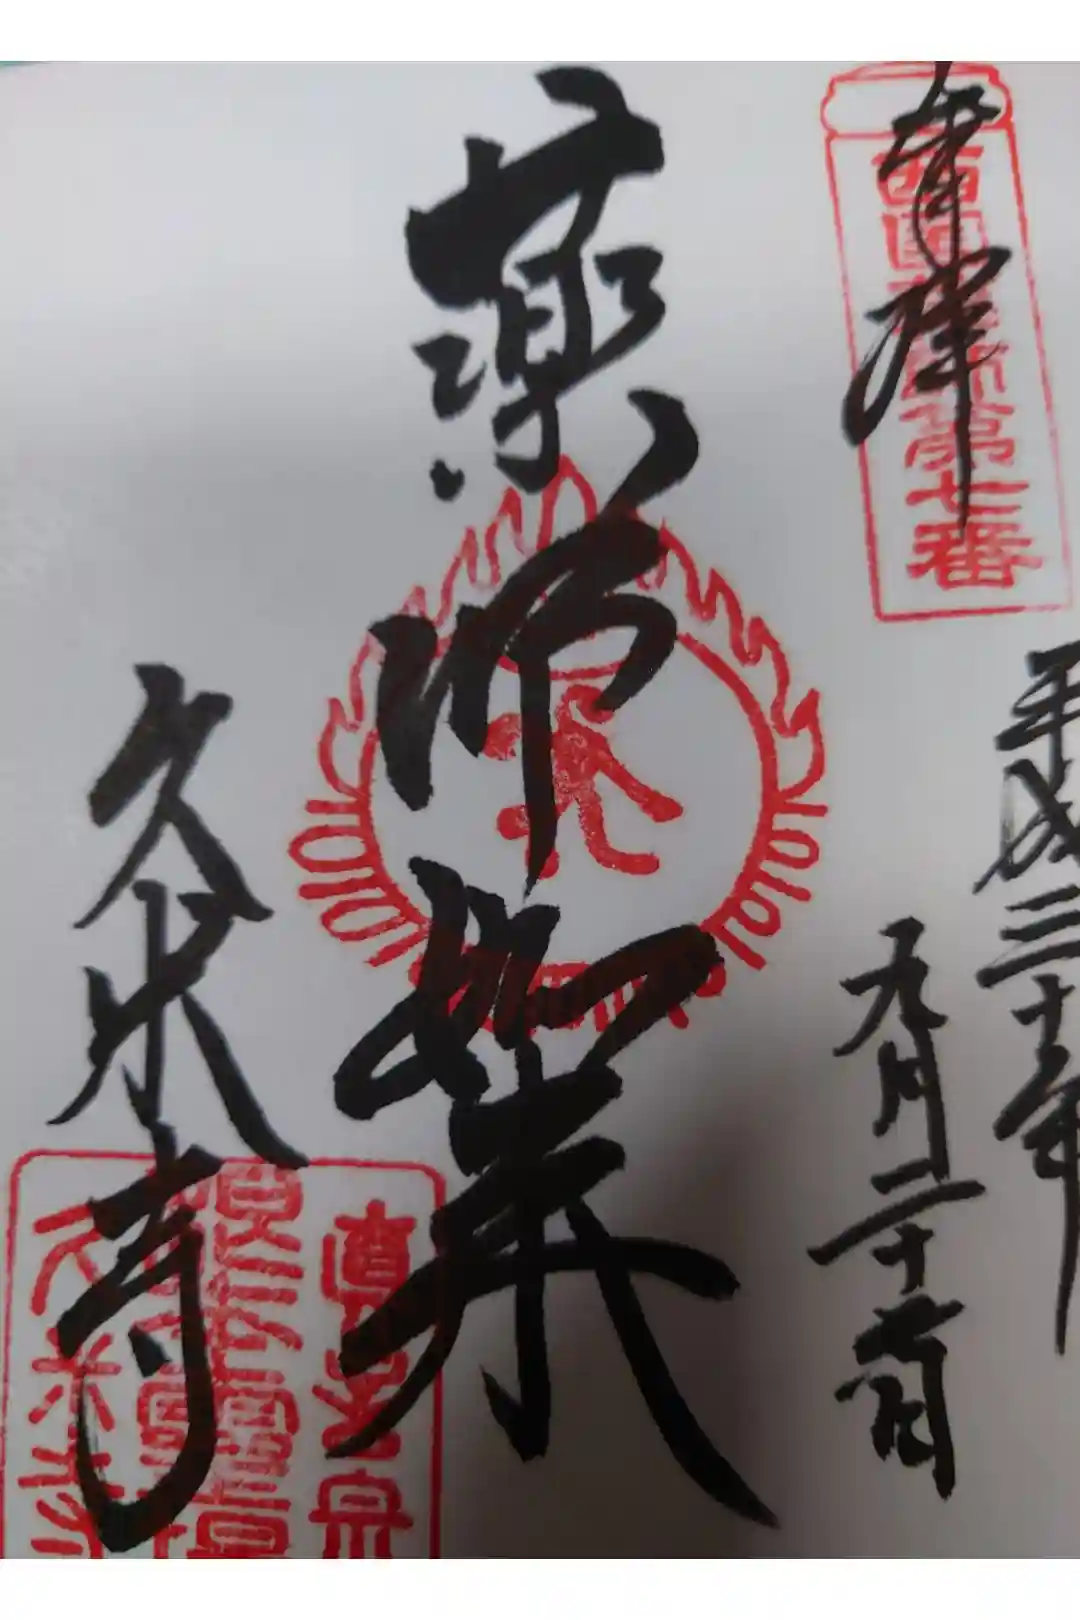 奉拝
西国薬師第七番
平成三十年
九月二十六日
薬師如来
久米寺